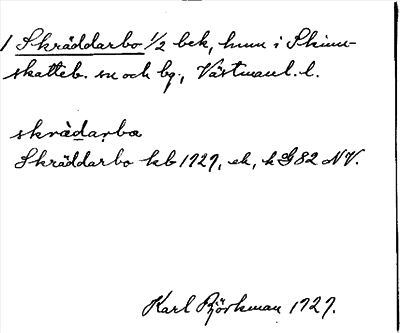 1 Skräddarbo 1/2 bek, hmn i Skinn-
skatteb. sn och bg., Västmanl. l.
skrädarba
Skräddarbo kb 1727, ek, k G 82 NV.
Karl Björkman 1727.